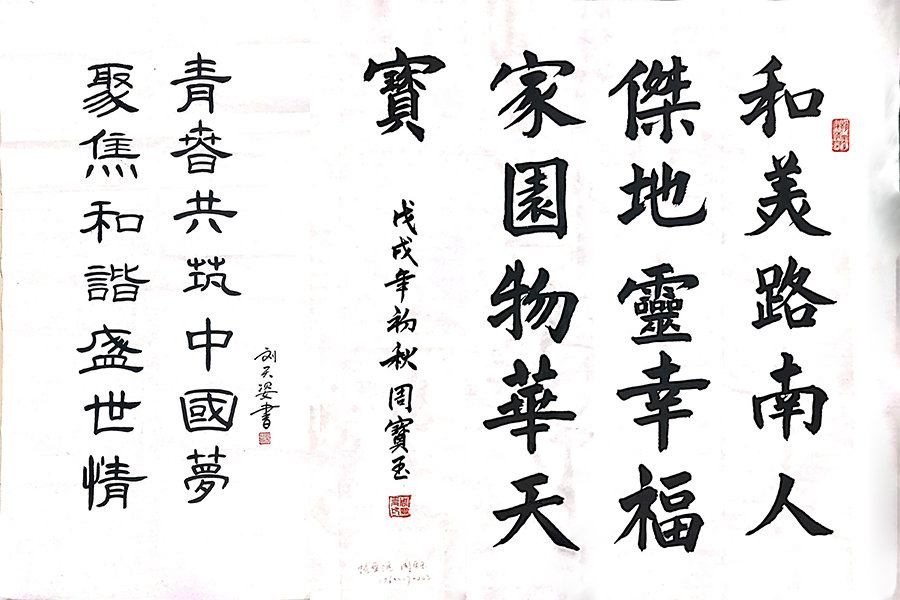 和美路南人
傑地靈幸福
家園物華天
寶
戊戌年初秋周寶玉
青春共筑中國夢
聚焦和諧盛世情
刘天姿書